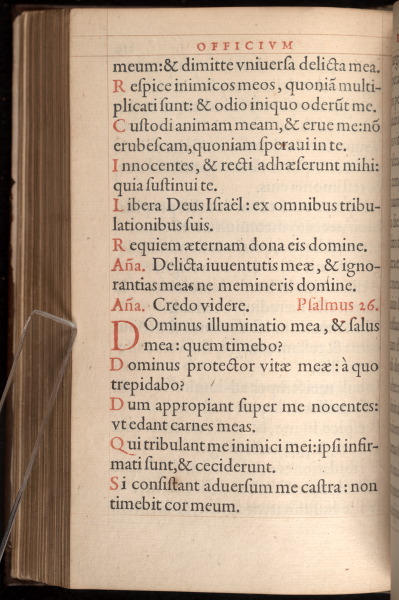 OFFICIVM
meum:& dimitte vniuerſa delicta mea.
Reſpice inimicos meos, quoniã multi-
plicati ſunt: & odio iniquo oderũt me.
Cuſtodi animam meam, & erue me:nõ
erubeſcam, quoniam ſperaui in te.
Innocentes, & recti adhæſerunt mihi:
quia ſuſtinui te.
Libera Deus Iſraël: ex omnibus tribu-
lationibus ſuis.
Requiem æternam dona eis domine.
Aña. Delicta iuuentutis meæ, & igno-
rantias meas ne memineris domine.
Aña. Credo videre. Pſalmus 26.
DOminus illuminatio mea, & ſalus
mea: quem timebo?
Dominus protector vitæ meæ: à quo
trepidabo?
Dum appropiant ſuper me nocentes:
vt edant carnes meas.
Qui tribulant me inimici mei: ipſi infir-
mati ſunt, & ceciderunt.
Si conſiſtant aduerſum me caſtra: non
timebit cor meum.